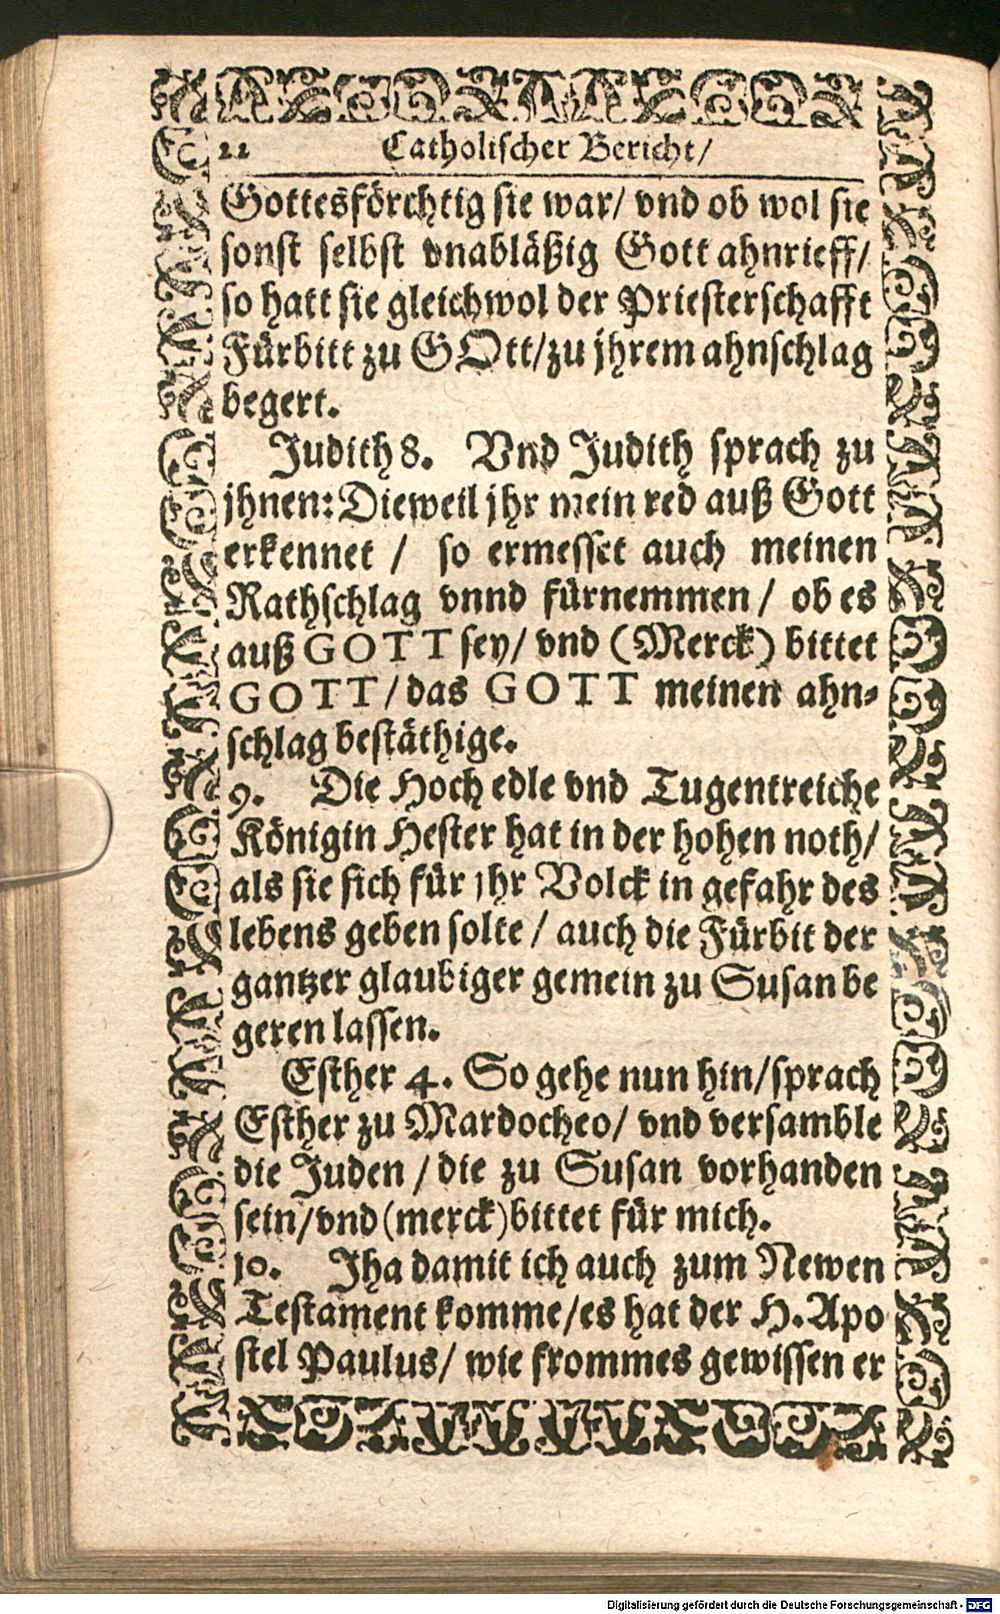 22 Catholischer Bericht/
Gottesförchtig sie war/ vnd ob wol sie
sonst selbst vnabläßig Gott ahnrieff/
so hatt sie gleichwol der Priesterschafft
Fürbitt zu GOtt/zu jhrem ahnschlag
begert.
Judith 8. Vnd Judith sprach zu
jhnen: Dieweil jhr mein red auß Gott
erkennet / so ermesset auch meinen
Rathschlag vnnd fürnemmen / ob es
auß GOTT sey/ vnd (Merck) bittet
GOTT/das GOTT meinen ahn-
schlag bestäthige.
9. Die Hoch edle vnd Tugentreiche
Königin Hester hat in der hohen noth/
als sie sich für jhr Volck in gefahr des
lebens geben solte / auch die Fürbit der
gantzer glaubiger gemein zu Susan be
geren lassen.
Esther 4. So gehe nun hin/sprach
Esther zu Mardocheo/ vnd versamble
die Juden / die zu Susan vorhanden
sein/vnd (merck) bittet für mich.
10. Jha damit ich auch zum Newen
Testament komme/es hat der H. Apo
stel Paulus/ wie frommes gewissen er
Digitalisierung gefördert durch die Deutsche Forschungsgemeinschaft - DFG